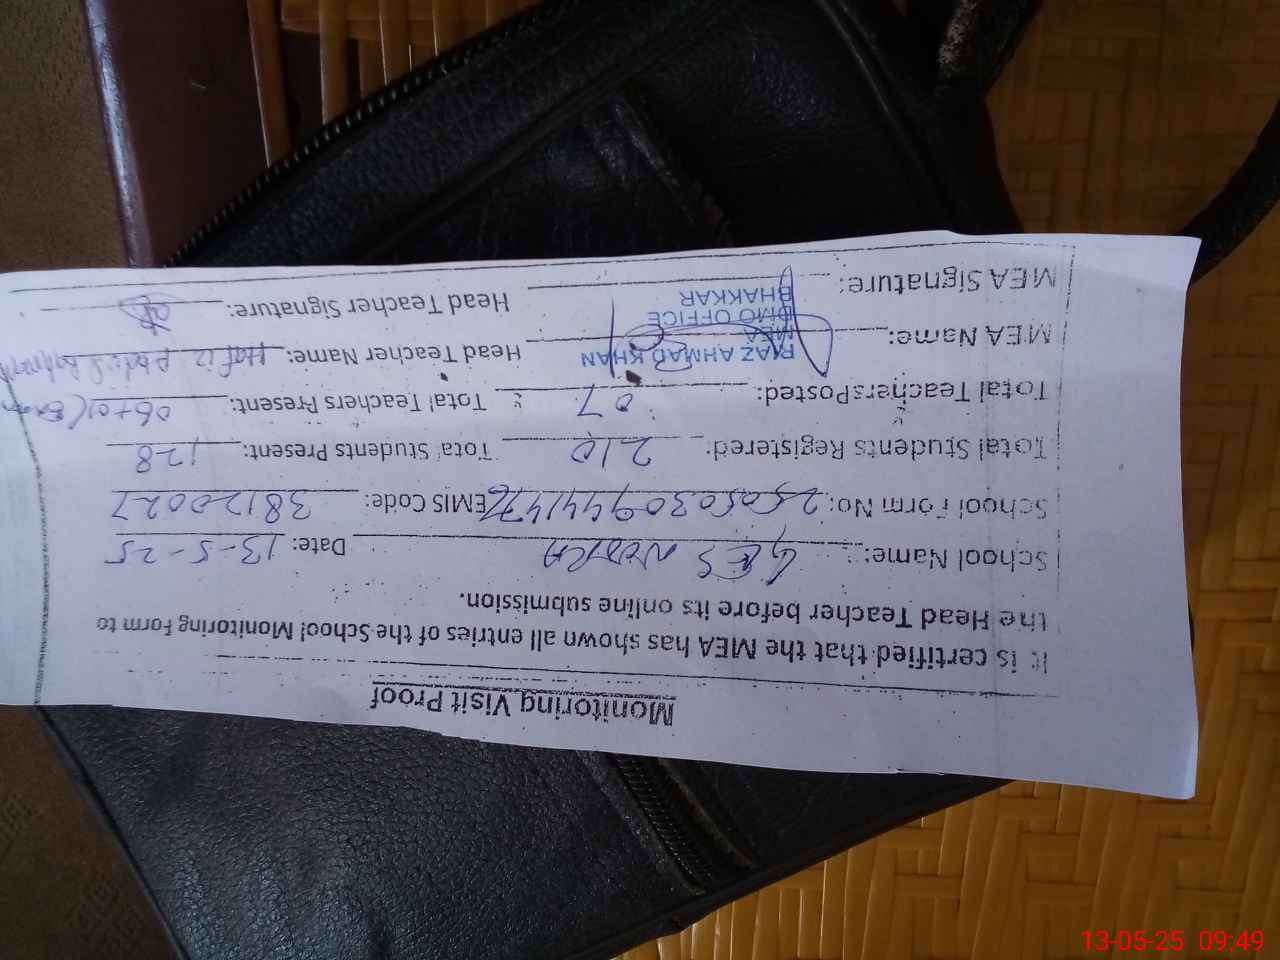 Monitoring Visit Proof
It is certified that the MEA has shown all entries of the School Monitoring Form to
the Head Teacher before its online submission.
School Name: GES Date: 13-5-25
School Form No: EMIS Code: 38120027
Total Students Registered: 210 Total Students Present: 128
Total Teachers Posted: 07 Total Teachers Present: 06+01
MEA Name: Head Teacher Name: Hafiz
RIAZ AHMAD KHAN
MEA
DMO OFFICE
BHAKKAR
MEA Signature: Head Teacher Signature:
13-05-25 09:49